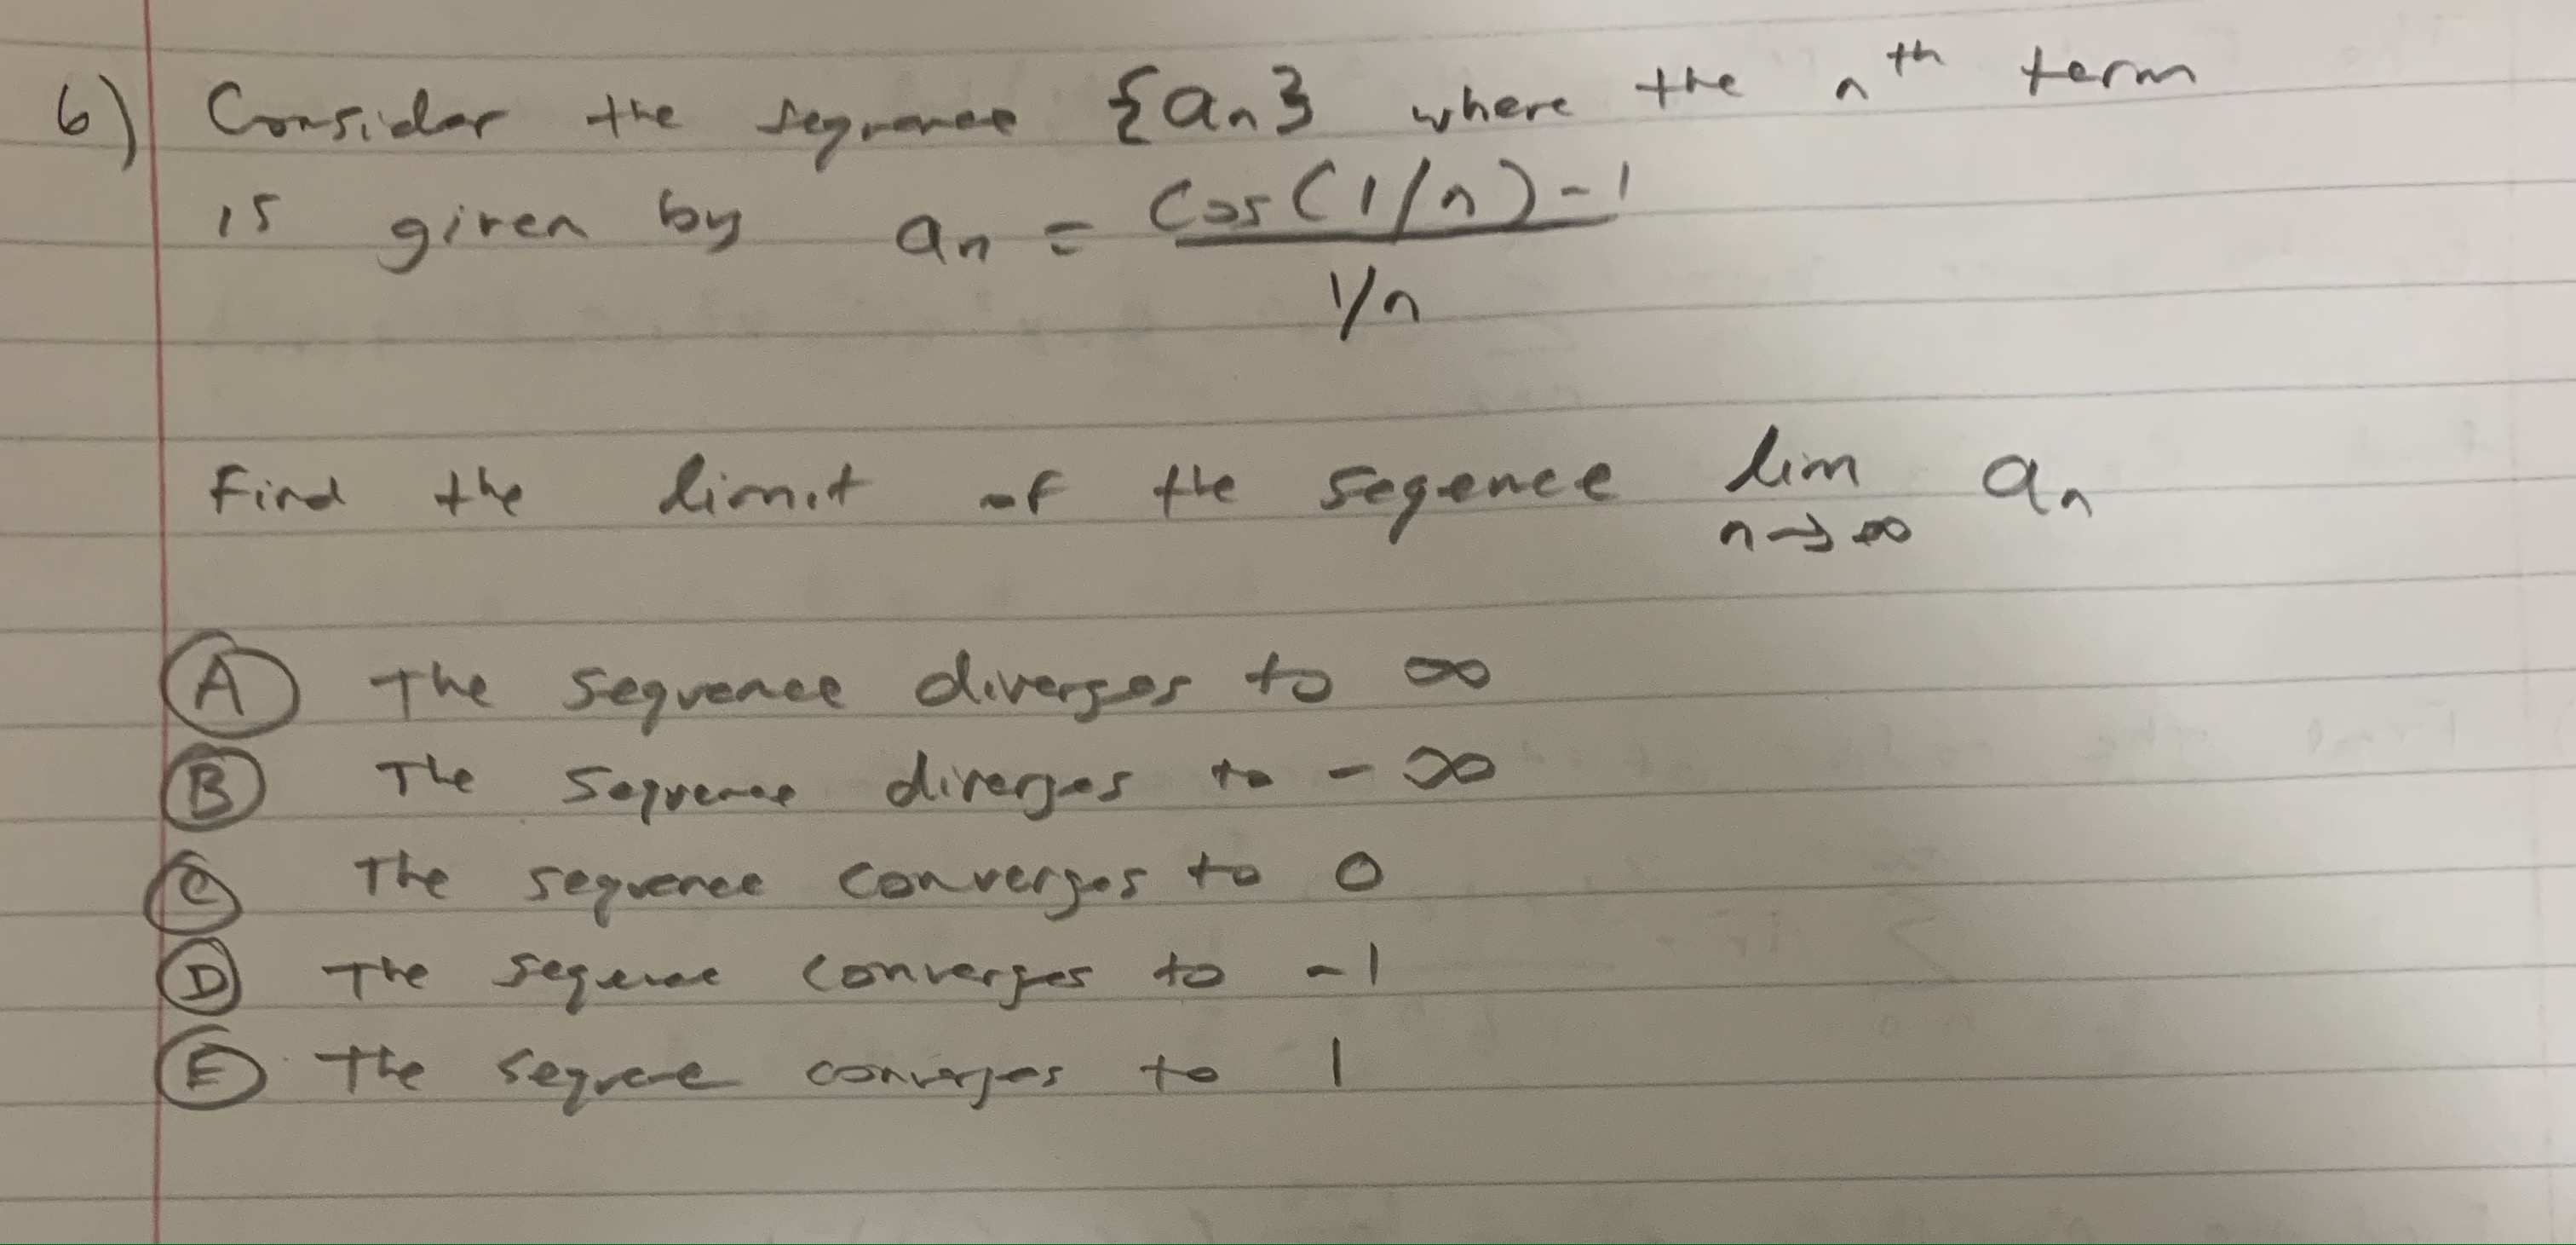 6) Consider the sequence {aₙ} where the nᵗʰ term
is given by aₙ = (cos(1/n)-1)/(1/n)
Find the limit of the seqence lim n→∞ aₙ
A The sequence diverges to ∞
B The sequence diverges to -∞
C The sequence converges to 0
D The sequence converges to -1
E The sequence converges to 1